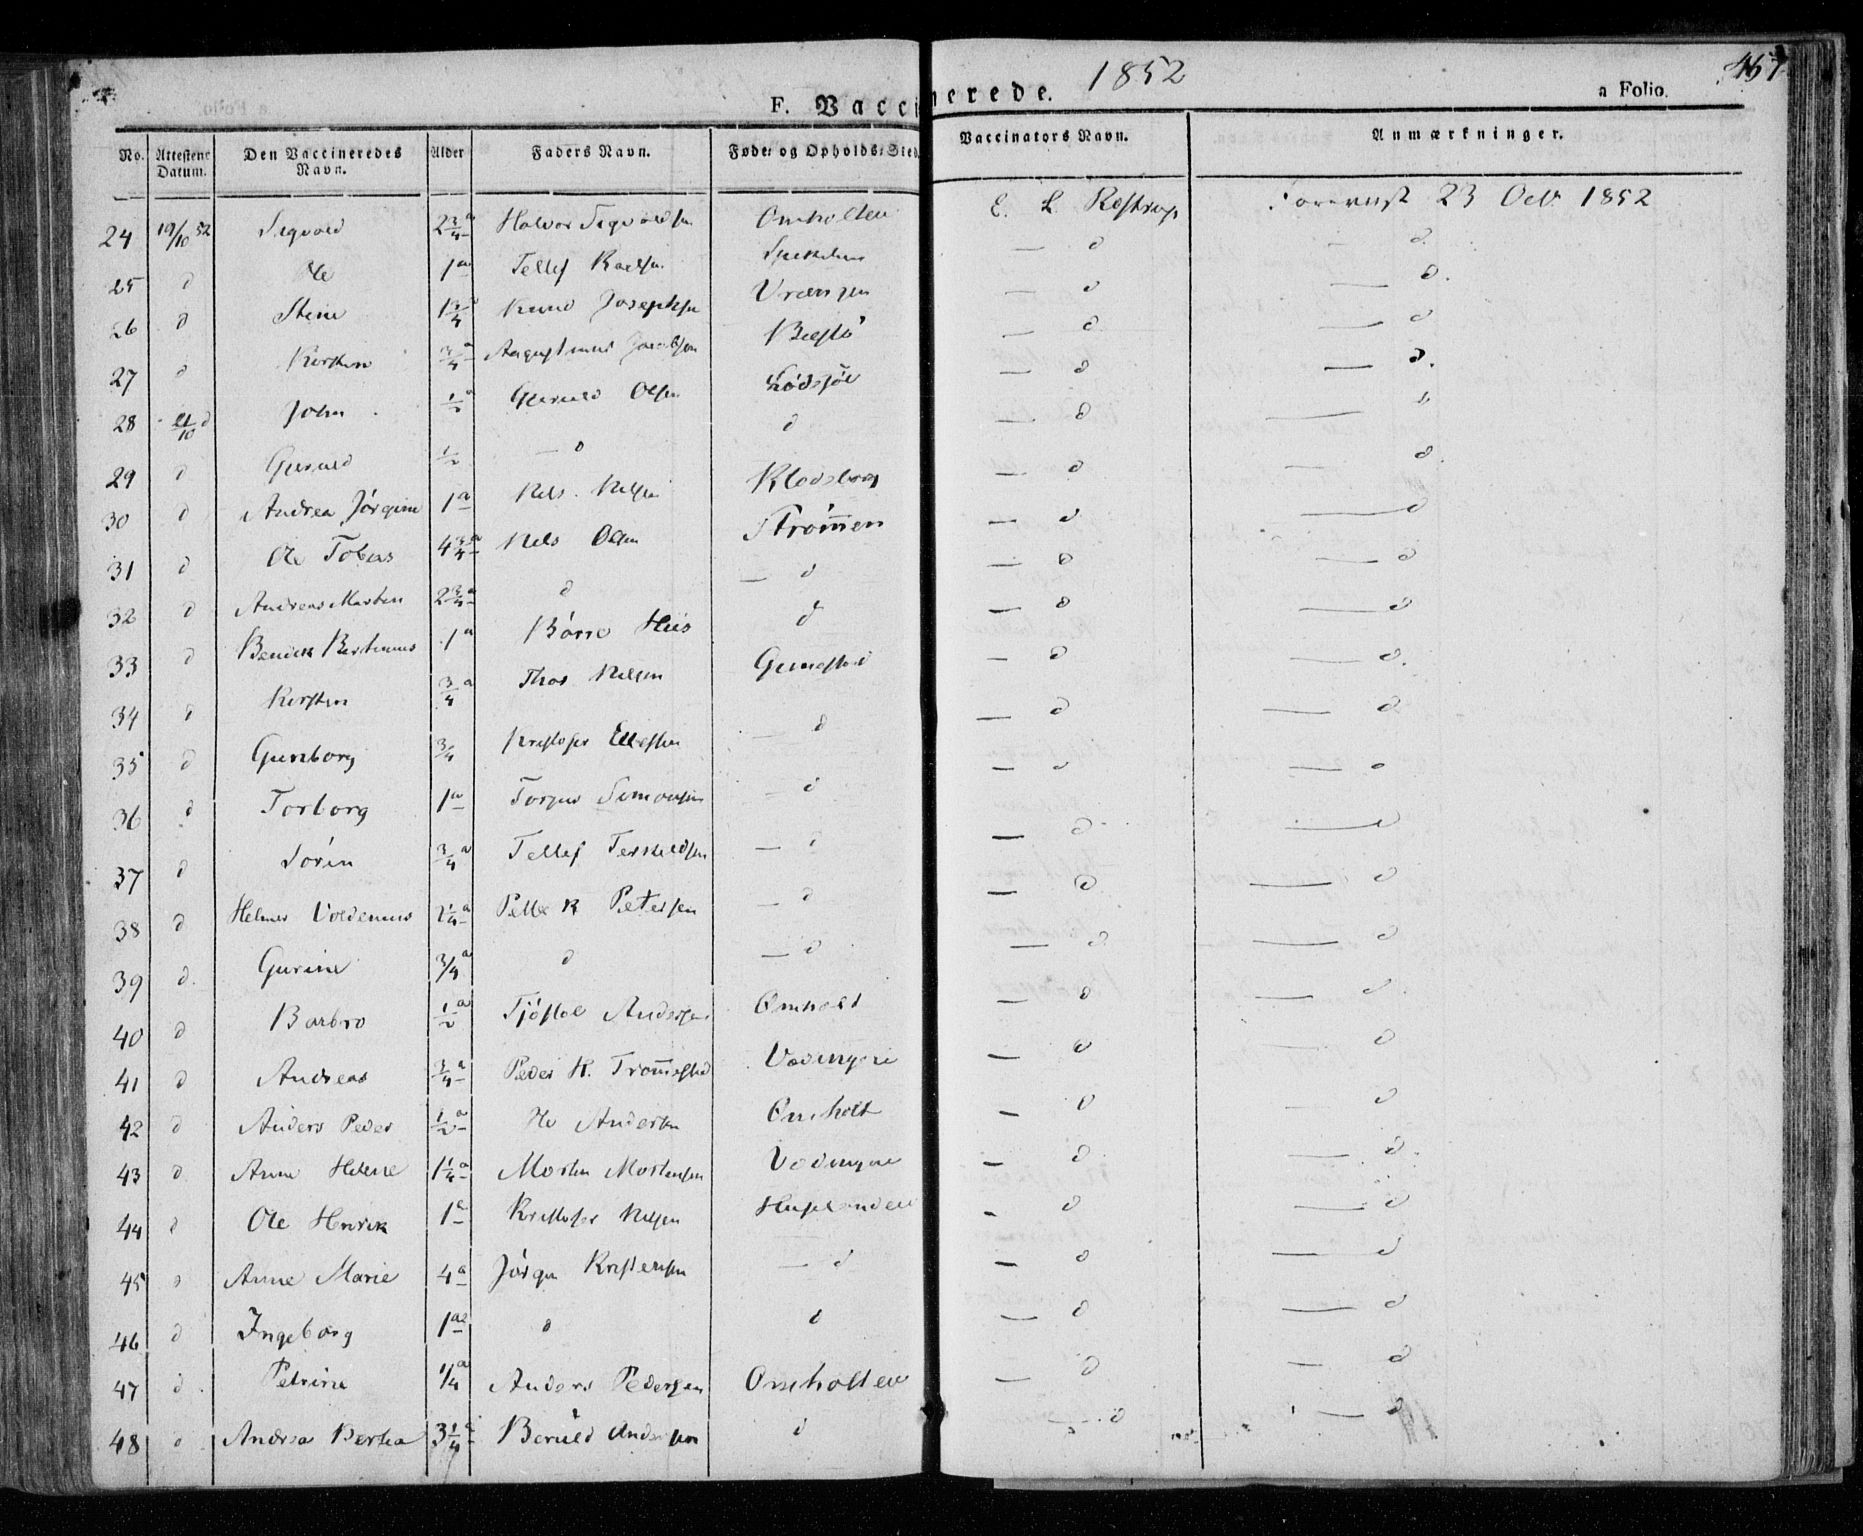 1852
457
F. Vaccinerede.
a Folio.
No. Attestens Datum. Den Vaccineredes Navn. Alder Faders Navn. Føde- og Opholds-Sted. Vaccinators Navn. Anmærkninger.
24 19/10 52 Sigvald 2 3/4 a Halvor Sigvaldsen Omholten E. L. Rostrup Forevist 23 Oct 1852
25 d Ole 1 a Tellef d d
26 d Stine 1 3/4 Knud Josephsen Vrængen d d
27 d Kirsten 3/4 a Augustinus Jacobsen d d
28 21/10 d John 1/2 a Gjeruld Olsen d d
29 d Gjeruld 1/2 d d d d
30 d Andrea Jørgine 1 a Nels Nelsen Klodeborg d d
31 d Ole Tobias 4 3/4 a Nels Olsen Strømmen d d
32 d Andreas Martin 2 3/4 a d d d d
33 d Bendik 1 a Børre d d d
34 d Kirsten 3/4 a Thor Nelsen d d
35 d Gunborg 3/4 Kristofer Ellefsen d d d
36 d Torborg 1 a Torger Simonsen d d d
37 d Sørin 3/4 a Tellef Terkeldsen d d d
38 d Helmer Voldemus 2 1/4 a Petter K Petersen d d d
39 d Gurine 3/4 a d d d d
40 d Barbro 1/2 a Tjøstol Andersen Omholt d d
41 d Andreas 3/4 a Peder K. Trommestad d d
42 d Anders Peder 1/2 a Ole Andersen Omholt d d
43 d Anne Helene 1 1/4 a Morten Mortensen d d
44 d Ole Henrik 1 a Kristofer Nelsen d d
45 d Anne Marie 4 a Jørgen Kristensen d d d
46 d Ingeborg 1 a d d d d
47 d Petrine 1/4 a Anders Pedersen Omholten d d
48 d Andrea Bertea 3 1/4 a Beruld Andersen d d d